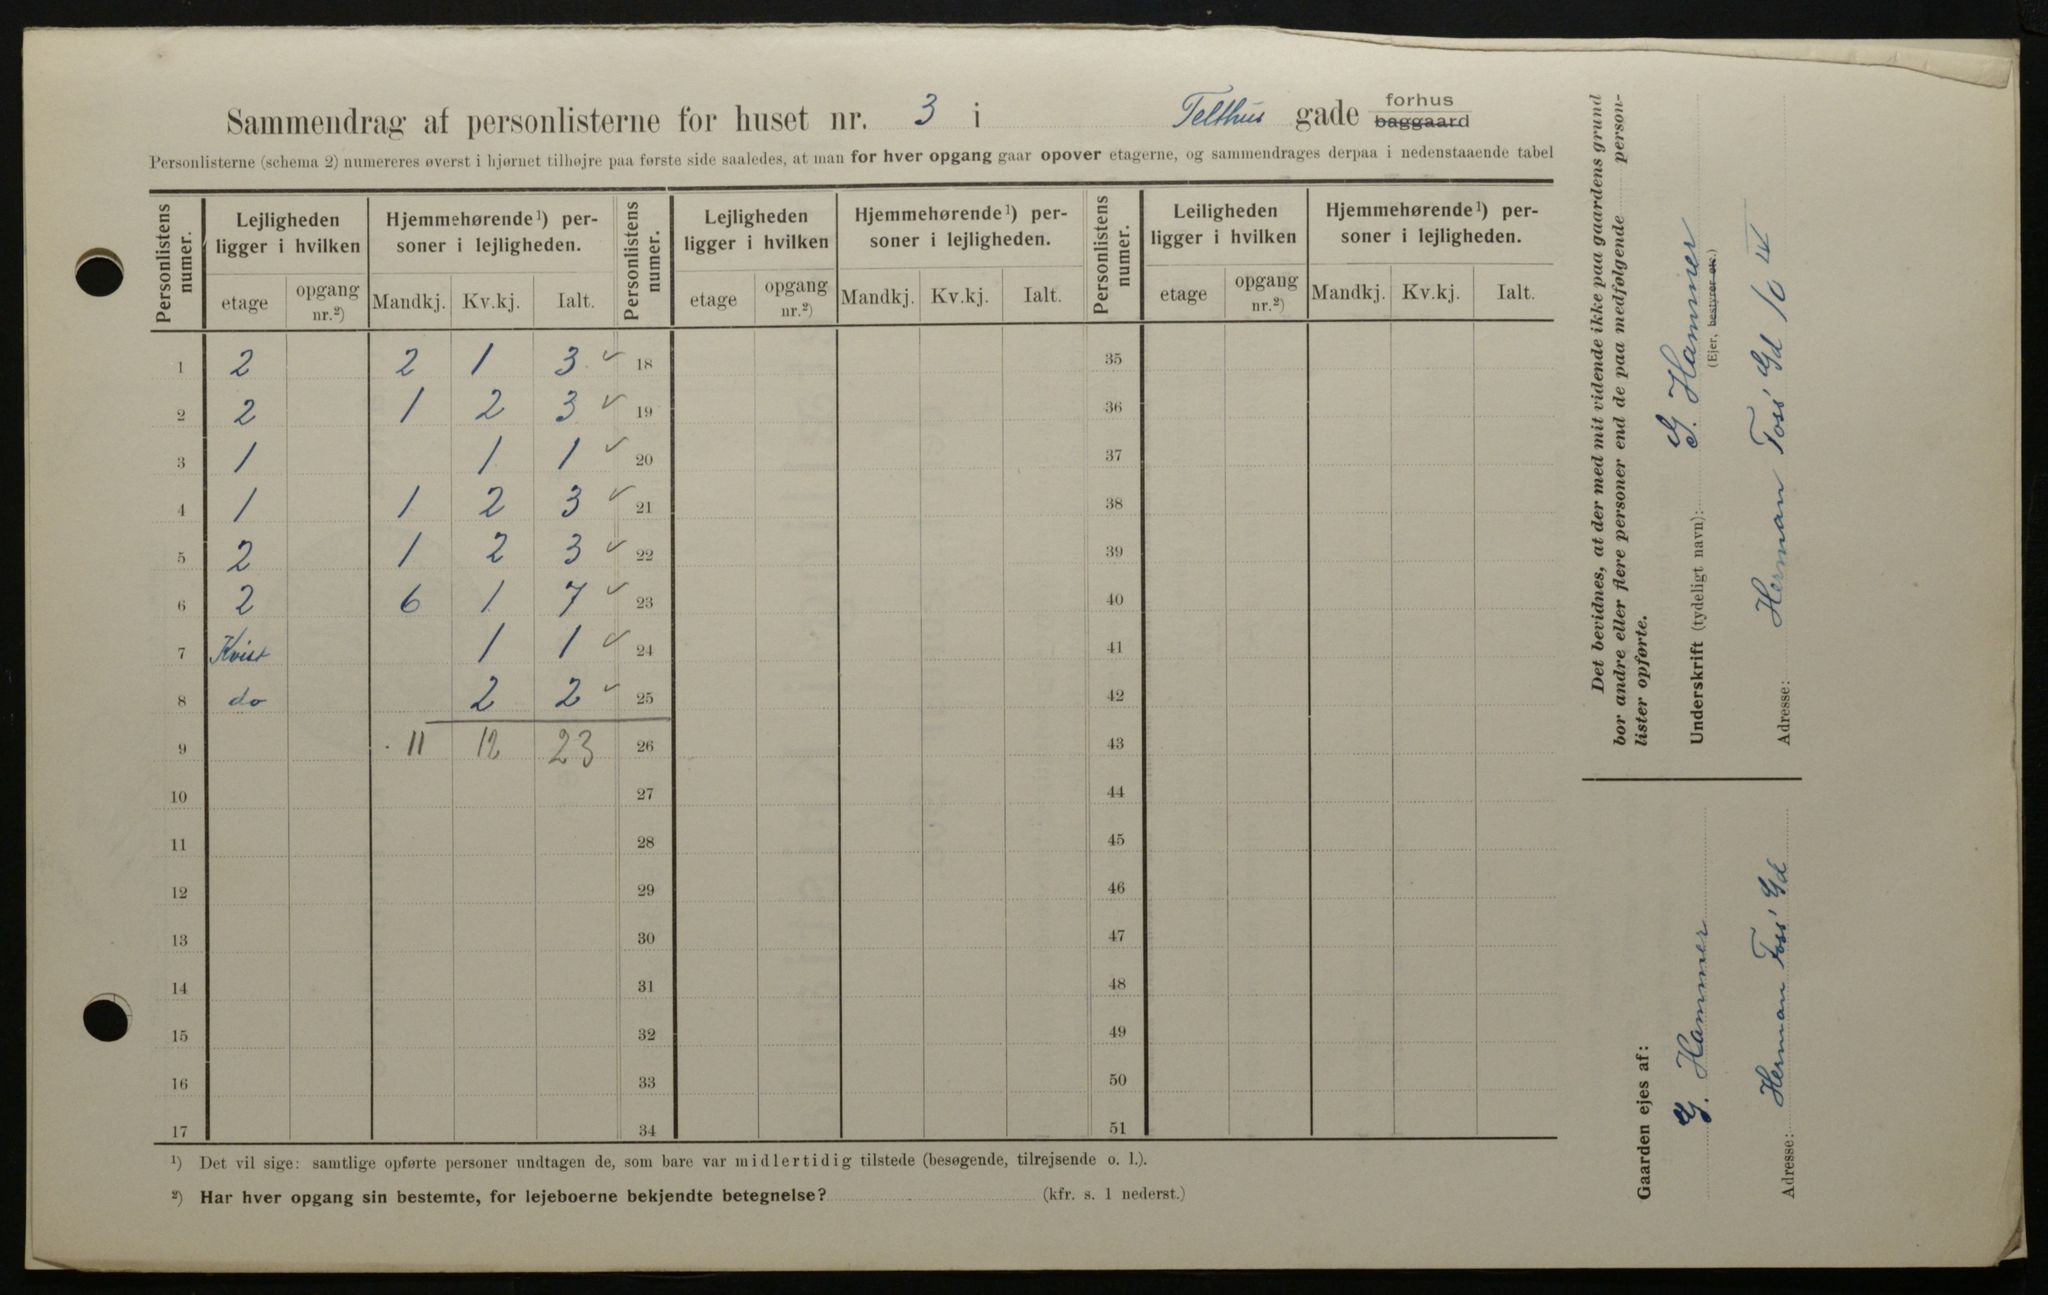 Sammendrag af personlisterne for huset nr. 3 i Telthus gade forhus baggaard
Personlisterne (schema 2) numereres øverst i hjørnet tilhøjre paa første side saaledes, at man for hver opgang gaar opover etagerne, og sammendrages derpaa i nedenstaaende tabel
Personlistens numer. Lejligheden ligger i hvilken Hjemmehørende¹) personer i lejligheden. Personlistens numer. Lejligheden ligger i hvilken Hjemmehørende¹) personer i lejligheden. Personlistens numer. Leiligheden ligger i hvilken Hjemmehørende¹) personer i lejligheden.
etage opgang nr.²) Mandkj. Kv.kj. Ialt. etage opgang nr.²) Mandkj. Kv.kj. Ialt. etage opgang nr.²) Mandkj. Kv.kj. Ialt.
1 2 2 1 3 ✓ 18 35
2 2 1 2 3 ✓ 19 36
3 1 1 1 ✓ 20 37
4 1 1 2 3 ✓ 21 38
5 2 1 2 3 ✓ 22 39
6 2 6 1 7 ✓ 23 40
7 Kvist 1 1 ✓ 24 41
8 do 2 2 ✓ 25 42
9 11 12 23 26 43
10 27 44
11 28 45
12 29 46
13 30 47
14 31 48
15 32 49
16 33 50
17 34 51
¹) Det vil sige: samtlige opførte personer undtagen de, som bare var midlertidig tilstede (besøgende, tilrejsende o. l.).
²) Har hver opgang sin bestemte, for lejeboerne bekjendte betegnelse? (kfr. s. 1 nederst.)
Det bevidnes, at der med mit vidende ikke paa gaardens grund
bor andre eller flere personer end de paa medfølgende personlister opførte.
Underskrift (tydeligt navn): G. Hammer
(Ejer, bestyrer etc.)
Adresse: Herman Foss' Gd 10 IV
Gaarden ejes af:
G. Hammer
Adresse: Herman Foss' Gd